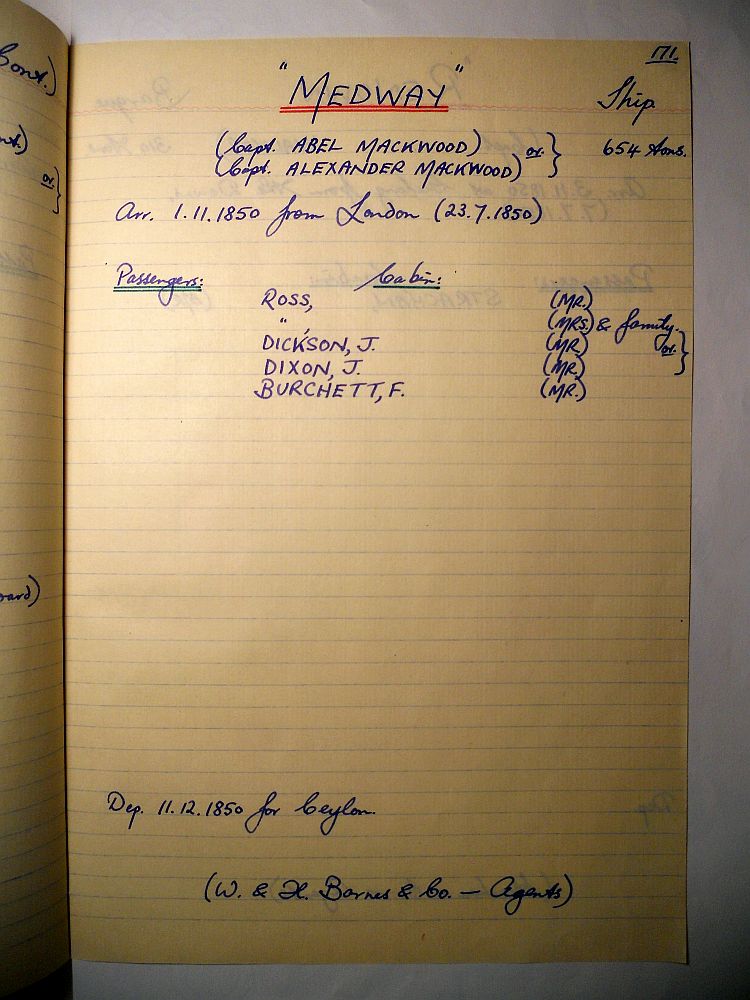 171.
"MEDWAY" Ship
(Capt. ABEL MACKWOOD) or.} 654 tons.
(Capt. ALEXANDER MACKWOOD)
Arr. 1.11.1850 from London (23.7.1850)
Passengers: Cabin:
ROSS, (MR.)
" , (MRS.) & family.
DICKSON, J. (MR.) or.}
DIXON, J. (MR.)
BURCHETT, F. (MR.)
Dep. 11.12.1850 for Ceylon.
(W. & H. Barnes & Co. — Agents)
Cont.)
or.}